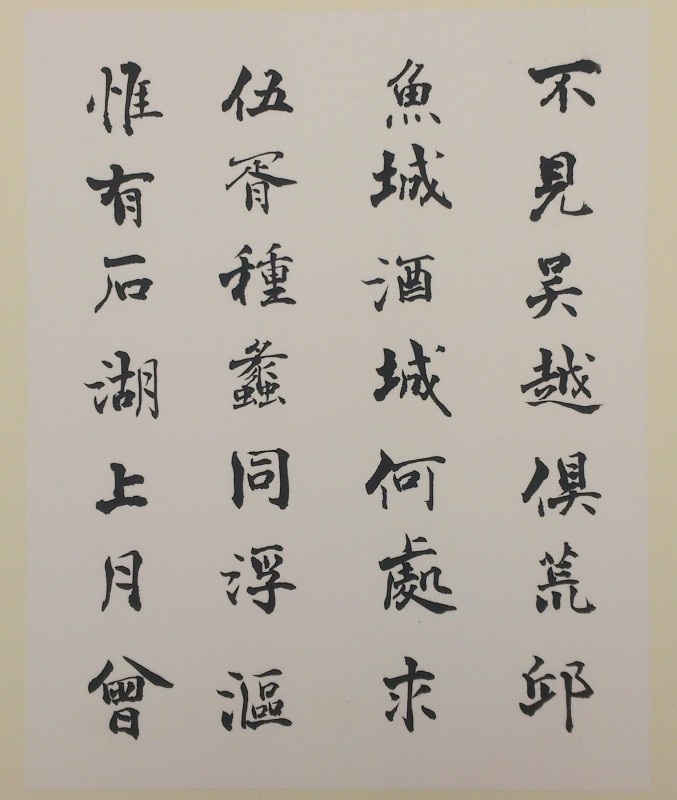 不見吴越俱荒邱
魚城酒城何處求
伍胥種蠡同浮漚
惟有石湖上月曾